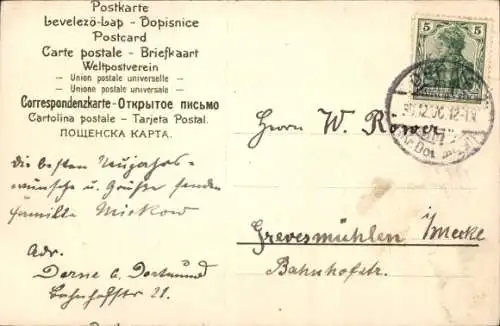 Postkarte
Levelező-Lap - Dopisnice
Postcard
Carte postale - Briefkaart
Weltpostverein
- Union postale universelle -
- Unione postale universale -
Correspondenzkarte - Открытое письмо
Cartolina postale - Tarjeta Postal.
ПОЩЕНСКА КАРТА.
5 5
12.06.12-1N.
Herrn W. Rower
Die besten Neujahrs-
wünsche u. Grüße senden
Familie Mickow
Adr.
Dorne b. Dortmund
Bahnhofstr 21.
Grevesmühlen i/Meckl
Bahnhofstr.